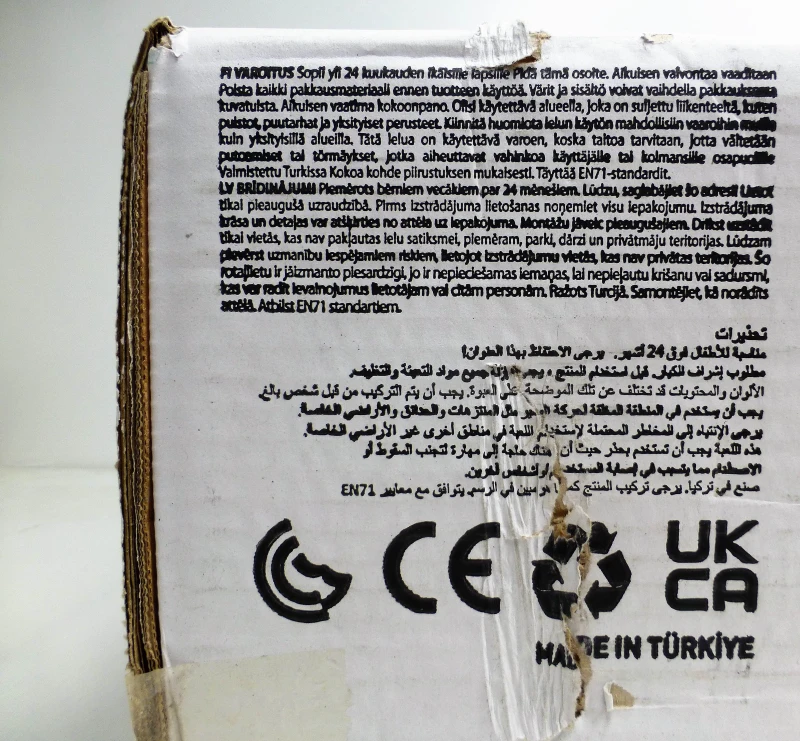 FI VAROITUS Sopii yli 24 kuukauden ikäisille lapsille Pidä tämä osoite. Aikuisen valvontaa vaaditaan
Poista kaikki pakkausmateriaali ennen tuotteen käyttöä. Värit ja sisältö voivat vaihdella pakkauksessa
kuvatuista. Aikuisen vaatima kokoonpano. Olisi käytettävä alueella, joka on suljettu liikenteeltä, kuten
puistot, puutarhat ja yksityiset perusteet. Kiinnitä huomiota lelun käytön mahdollisiin vaaroihin muilla
kuin yksityisillä alueilla. Tätä lelua on käytettävä varoen, koska taitoa tarvitaan, jotta vältetään
putoamiset tai törmäykset, jotka aiheuttavat vahinkoa käyttäjälle tai kolmansille osapuolille
Valmistettu Turkissa Kokoa kohde piirustuksen mukaisesti. Täyttää EN71-standardit.
LV BRĪDINĀJUMI Piemērots bērniem vecākiem par 24 mēnešiem. Lūdzu, saglabājiet šo adresi! Lietot
tikai pieaugušā uzraudzībā. Pirms izstrādājuma lietošanas noņemiet visu iepakojumu. Izstrādājuma
krāsa un detaļas var atšķirties no attēla uz iepakojuma. Montāžu jāveic pieaugušajiem. Drīkst uzstādīt
tikai vietās, kas nav pakļautas ielu satiksmei, piemēram, parki, dārzi un privātmāju teritorijas. Lūdzam
pievērst uzmanību iespējamiem riskiem, lietojot izstrādājumu vietās, kas nav privātas teritorijas. Šo
rotaļlietu ir jāizmanto piesardzīgi, jo ir nepieciešamas iemaņas, lai nepieļautu krišanu vai sadursmi,
kas var radīt ievainojumus lietotājam vai citām personām. Ražots Turcijā. Samontējiet, kā norādīts
attēlā. Atbilst EN71 standartiem.
تحذيرات
مناسبة للأطفال فوق 24 أشهر. يرجى الاحتفاظ بهذا العنوان!
مطلوب إشراف الكبار. قبل استخدام المنتج ، يجب إزالة جميع مواد التعبئة والتغليف.
الألوان والمحتويات قد تختلف عن تلك الموضحة على العبوة. يجب أن يتم التركيب من قبل شخص بالغ.
يجب أن يستخدم في المنطقة المغلقة لحركة المرور مثل المنتزهات والحدائق والأراضي الخاصة.
يرجى الإنتباه إلى المخاطر المحتملة لإستخدام اللعبة في مناطق أخرى غير الأراضي الخاصة.
هذه اللعبة يجب أن تستخدم بحذر حيث أن هناك حاجة إلى مهارة لتجنب السقوط أو
الاصطدام مما يتسبب في إصابة المستخدم أو اشخاص آخرين.
صنع في تركيا. يرجى تركيب المنتج كما هو مبين في الرسم. يتوافق مع معايير EN71
CE
UK
CA
MADE IN TÜRKİYE